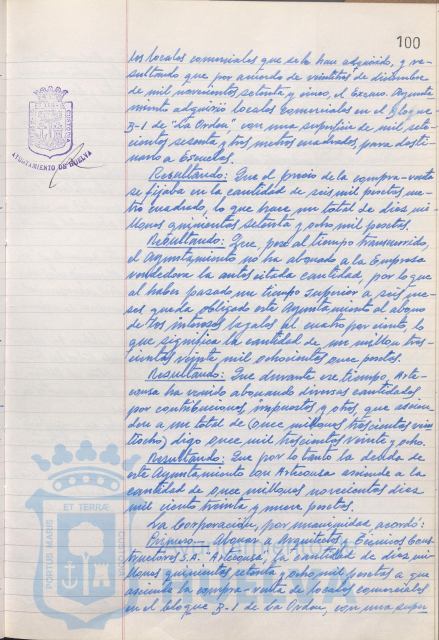 100
los locales comerciales que se le han adquirido, y re-
sultando que por acuerdo de veintitres de diciembre
de mil novecientos setenta y cinco, el Excmo. Ayunta-
miento adquirió locales comerciales en el Bloque
B-1 de "La Orden", con una superficie de mil sete-
cientos sesenta y tres metros cuadrados, para desti-
narlo a Escuelas.
Resultando: Que el precio de la compra-venta
se fijaba en la cantidad de seis mil pesetas me-
tro cuadrado, lo que hace un total de diez mi-
llones quinientos setenta y ocho mil pesetas.
Resultando: Que, pese al tiempo transcurrido,
el Ayuntamiento no ha abonado a la Empresa
vendedora la antes citada cantidad, por lo que
al haber pasado un tiempo superior a seis me-
ses queda obligado este Ayuntamiento al abono
de los intereses legales al cuatro por ciento, lo
que significa la cantidad de un millon tres-
cientas veinte mil ochocientas once pesetas.
Resultando: Que durante ese tiempo, Arte-
cousa ha venido abonando diversas cantidades
por contribuciones, impuestos y otros, que ascien-
den a un total de (once millones trescientos vein
tiocho) digo once mil trescientos veinte y ocho.
Resultando: Que por lo tanto la deuda de
este Ayuntamiento con Artecousa asciende a la
cantidad de once millones novecientos diez
mil ciento treinta y nueve pesetas.
La Corporación, por unanimidad, acordó:
Primero.- Abonar a Arquitectos y Técnicos Cons-
tructores S.A. Artecousa, la cantidad de diez mi-
llones quinientos setenta y ocho mil pesetas a que
asciende la compra-venta de locales comerciales
en el bloque B-1 de La Orden, con una super
AYUNTAMIENTO DE HUELVA
PORTUS MARIS ET TERRAE CUSTODIA